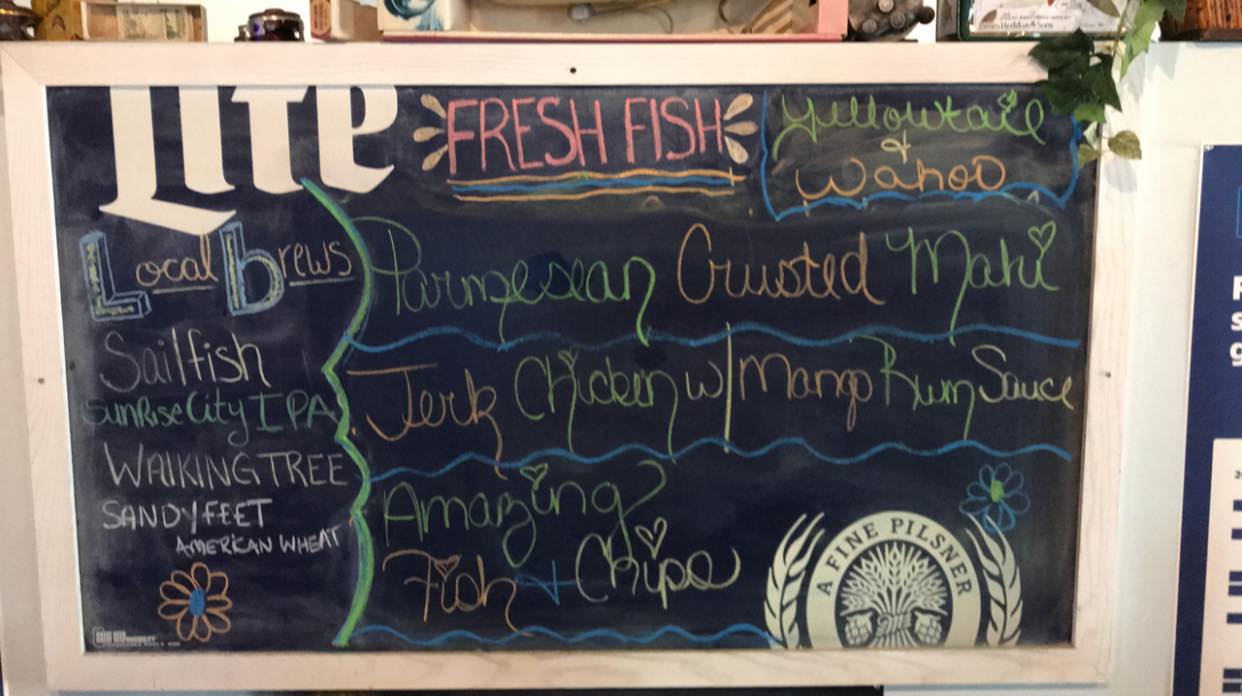 Lite
FRESH FISH
Yellowtail
&
Wahoo
Local Brews
Sailfish
SunRise City IPA
WALKING TREE
SANDY FEET
AMERICAN WHEAT
Parmesean Crusted Mahi
Jerk Chicken w/ Mango Rum Sauce
Amazing
Fish & Chips
A FINE PILSNER